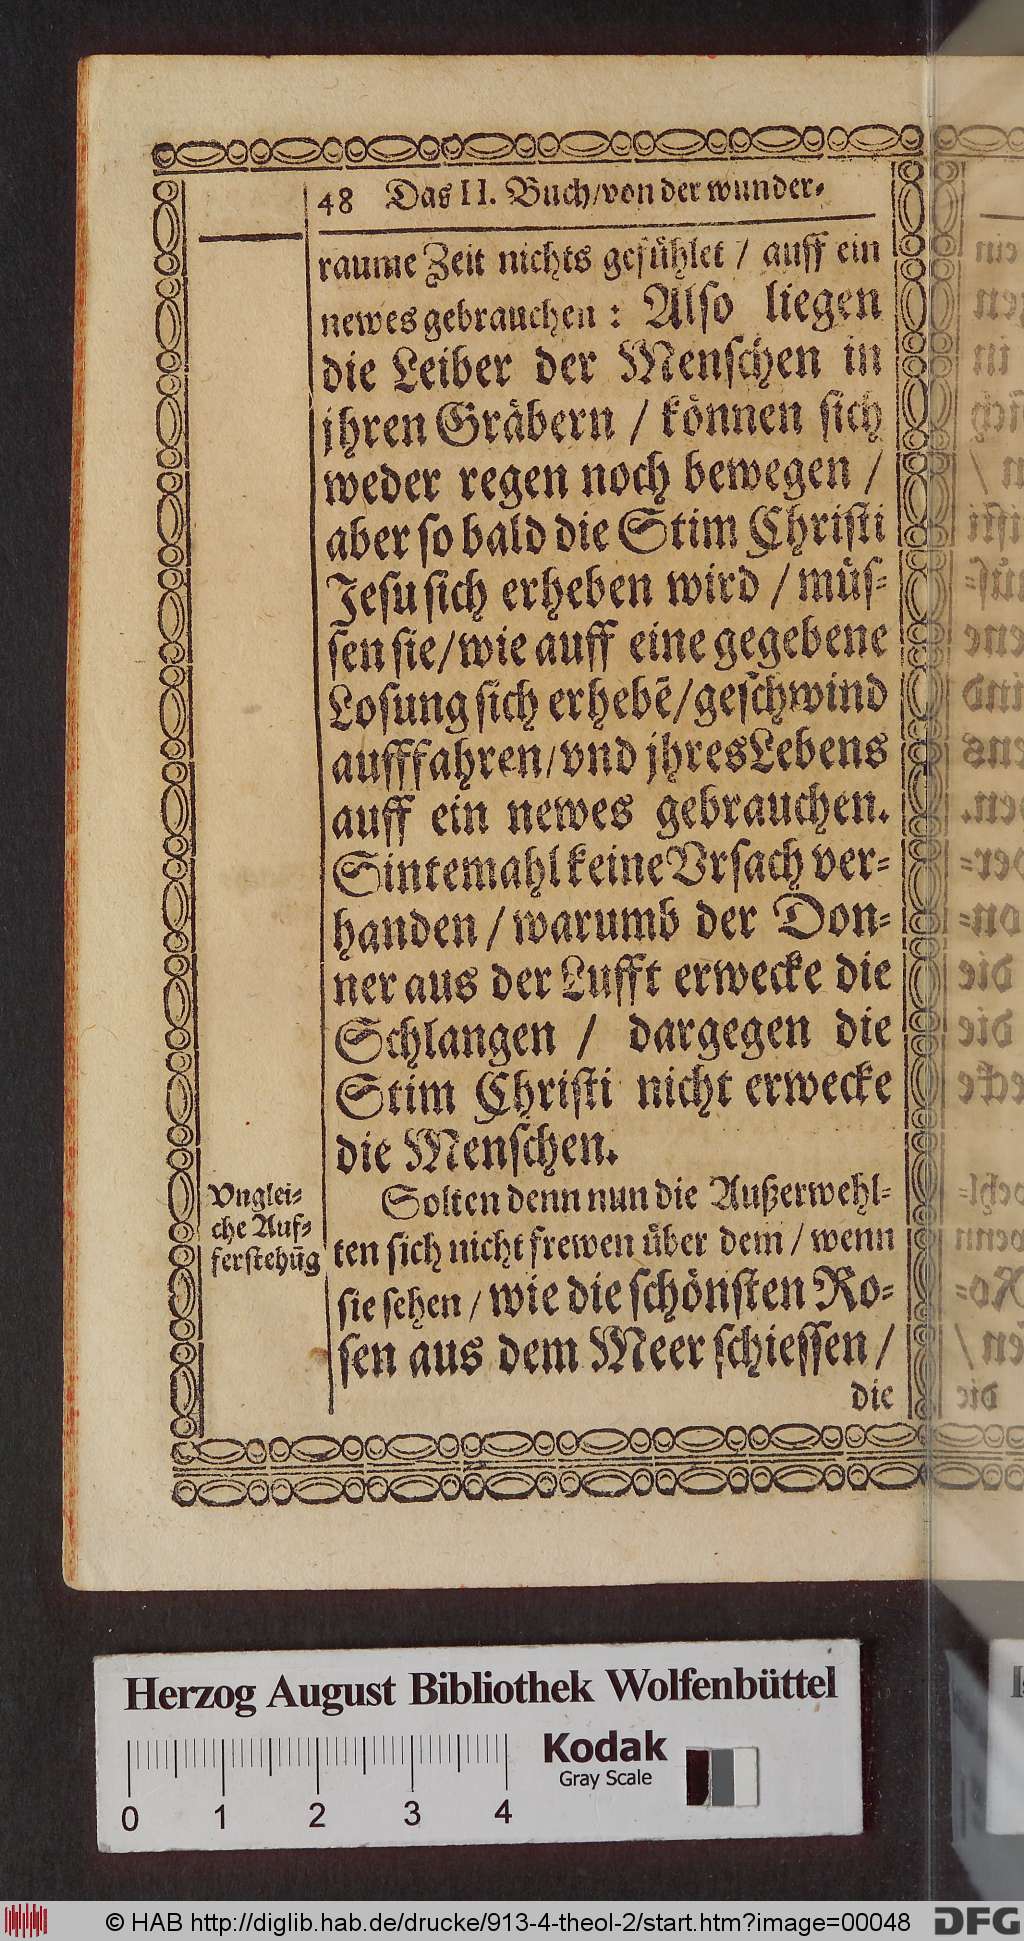 48 Das II. Buch/von der wunder-
raume Zeit nichts gefühlet / auff ein
newes gebrauchen : Also liegen
die Leiber der Menschen in
jhren Gräbern / können sich
weder regen noch bewegen /
aber so bald die Stim Christi
Jesu sich erheben wird / müs-
sen sie/wie auff eine gegebene
Losung sich erhebē/geschwind
aufffahren/vnd jhres Lebens
auff ein newes gebrauchen.
Sintemahl keine Vrsach ver-
handen / warumb der Don-
ner aus der Lufft erwecke die
Schlangen / dargegen die
Stim Christi nicht erwecke
die Menschen.
Vnglei-
che Auf-
ferstehūg
Solten denn nun die Außerwehl-
ten sich nicht frewen über dem / wenn
sie sehen / wie die schönsten Ro-
sen aus dem Meer schiessen /
die
Herzog August Bibliothek Wolfenbüttel
Kodak
Gray Scale
0 1 2 3 4
© HAB http://diglib.hab.de/drucke/913-4-theol-2/start.htm?image=00048
DFG